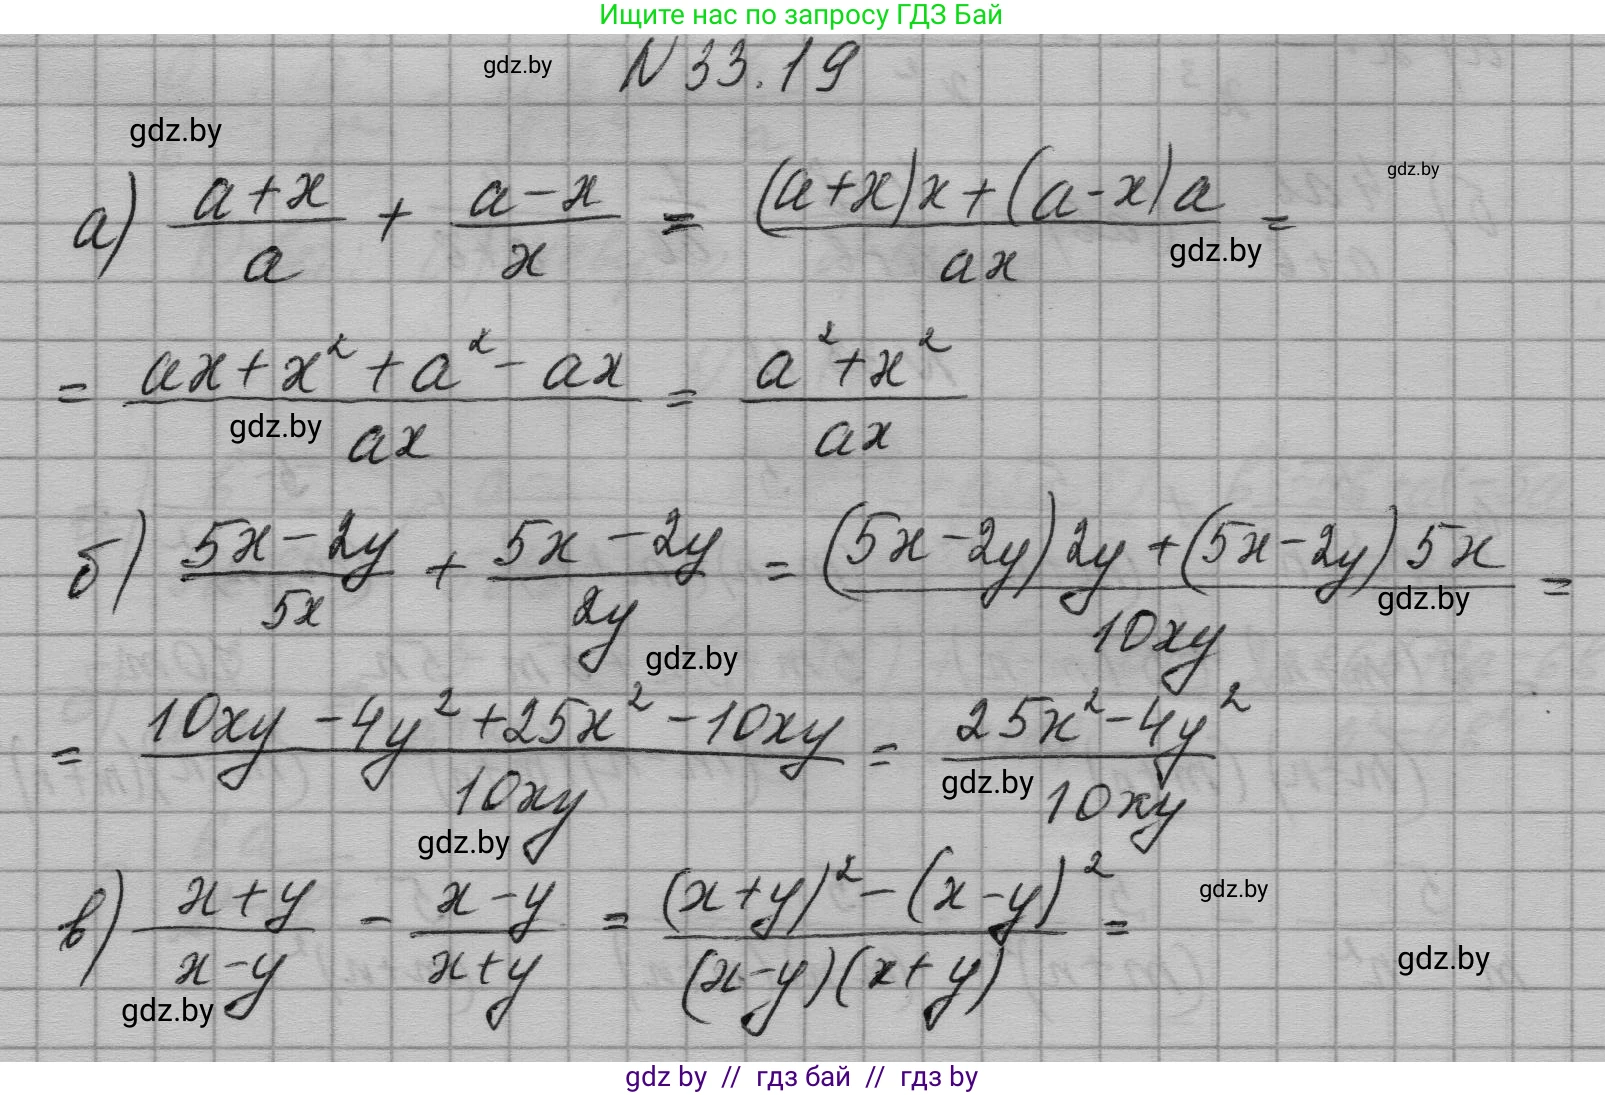 Ищите нас по запросу ГДЗ Бай
gdz.by N 33.19
gdz.by
gdz.by
а) (a+x)/a + (a-x)/x = ((a+x)x+(a-x)a)/(ax) =
gdz.by
= (ax+x²+a²-ax)/(ax) = (a²+x²)/(ax)
gdz.by
б) (5x-2y)/(5x) + (5x-2y)/(2y) = ((5x-2y)2y+(5x-2y)5x)/(10xy) =
gdz.by
gdz.by
= (10xy-4y²+25x²-10xy)/(10xy) = (25x²-4y²)/(10xy)
gdz.by
gdz.by
в) (x+y)/(x-y) - (x-y)/(x+y) = ((x+y)²-(x-y)²)/((x-y)(x+y)) =
gdz.by
gdz.by
gdz.by
gdz by // гдз бай // гдз by